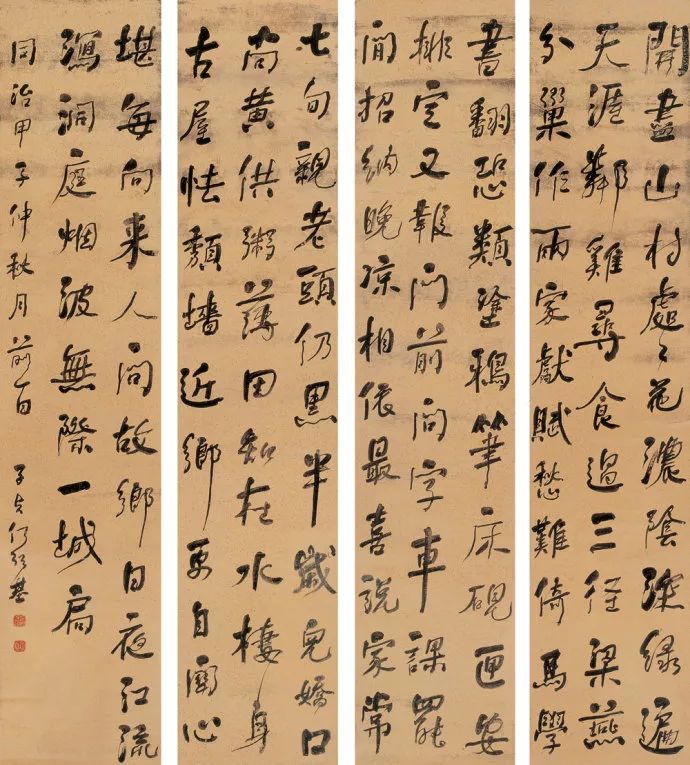 開盡山村處々花濃陰深緑遍
天涯鄰雞尋食過三徑梁燕
分巢作兩家獻賦愁難倚馬學
書翻恐類塗鴉筆床硯匣安
排定又報門前問字車課罷
閒招納晚涼相依最喜說家常
七旬親老頭仍黑半歲兒嬌口
尚黄供粥薄田知在水棲身
古屋怯頹墻近鄉更自關心
堪每向来人問故鄉日夜江流
瀉洞庭烟波無際一城扃
同治甲子仲秋月前一日
子貞何紹基